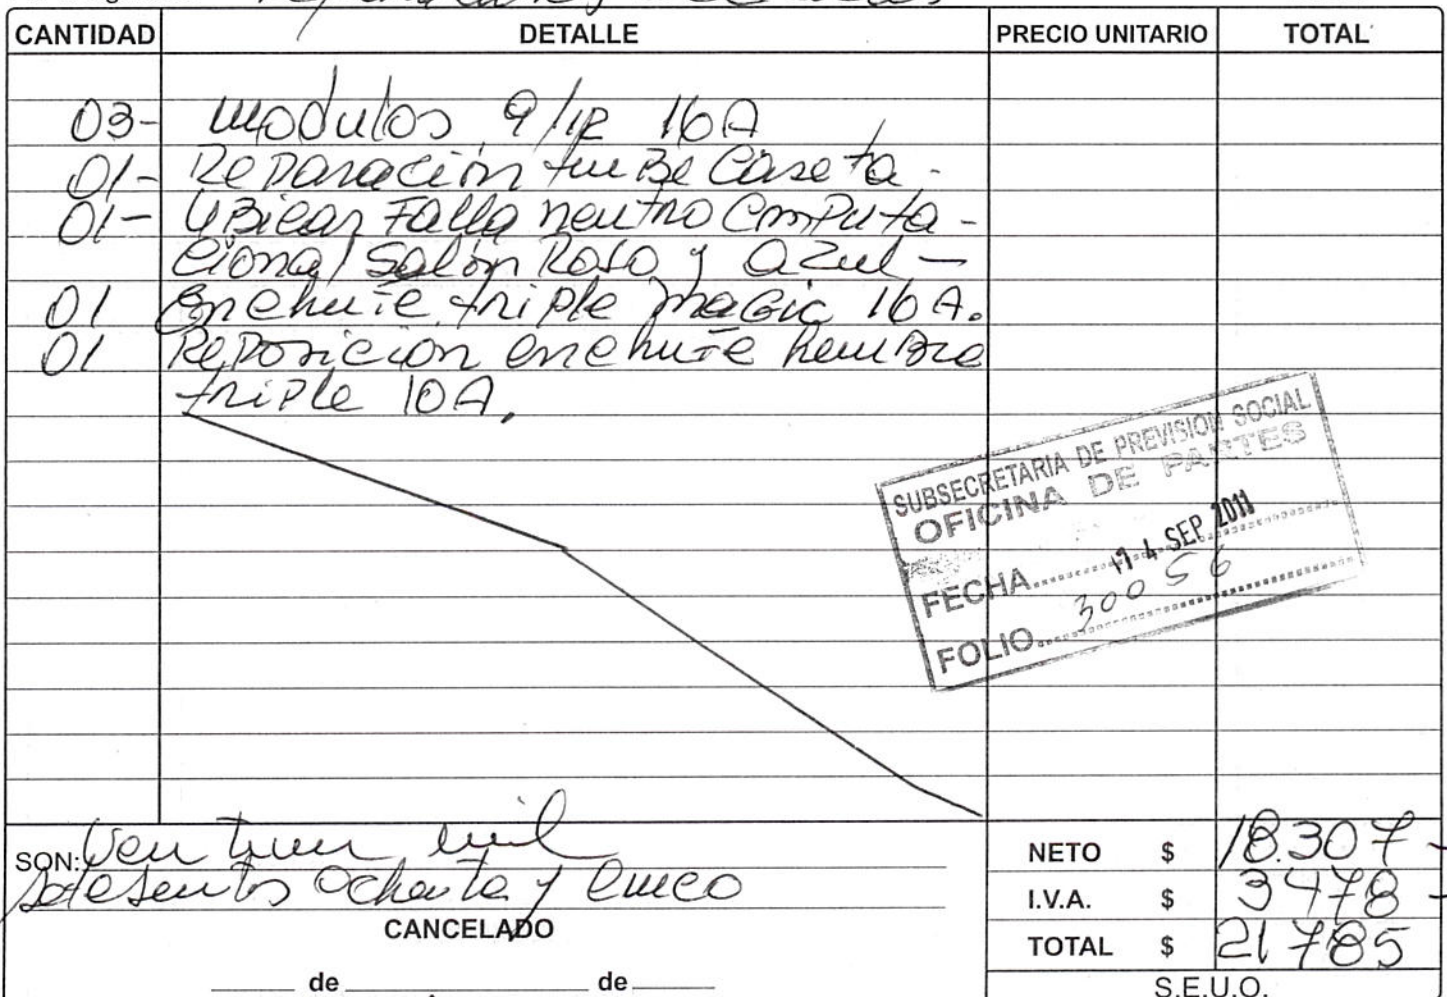 CANTIDAD DETALLE PRECIO UNITARIO TOTAL
03- modulos 9/12 16A
01- Reparación tubo caseta -
01- Ubicar Falla neutro Computa-
cional Salón Roso y azul -
01 Enchufe triple magic 16A.
01 Reposicion enchufe hembra
triple 10A.
SUBSECRETARIA DE PREVISION SOCIAL
OFICINA DE PARTES
FECHA 14 SEP 2011
FOLIO 30056
SON: Ventiun mil
setesentos ochenta y cinco
NETO $ 18.307-
I.V.A. $ 3478-
TOTAL $ 21785
CANCELADO
de de
S.E.U.O.